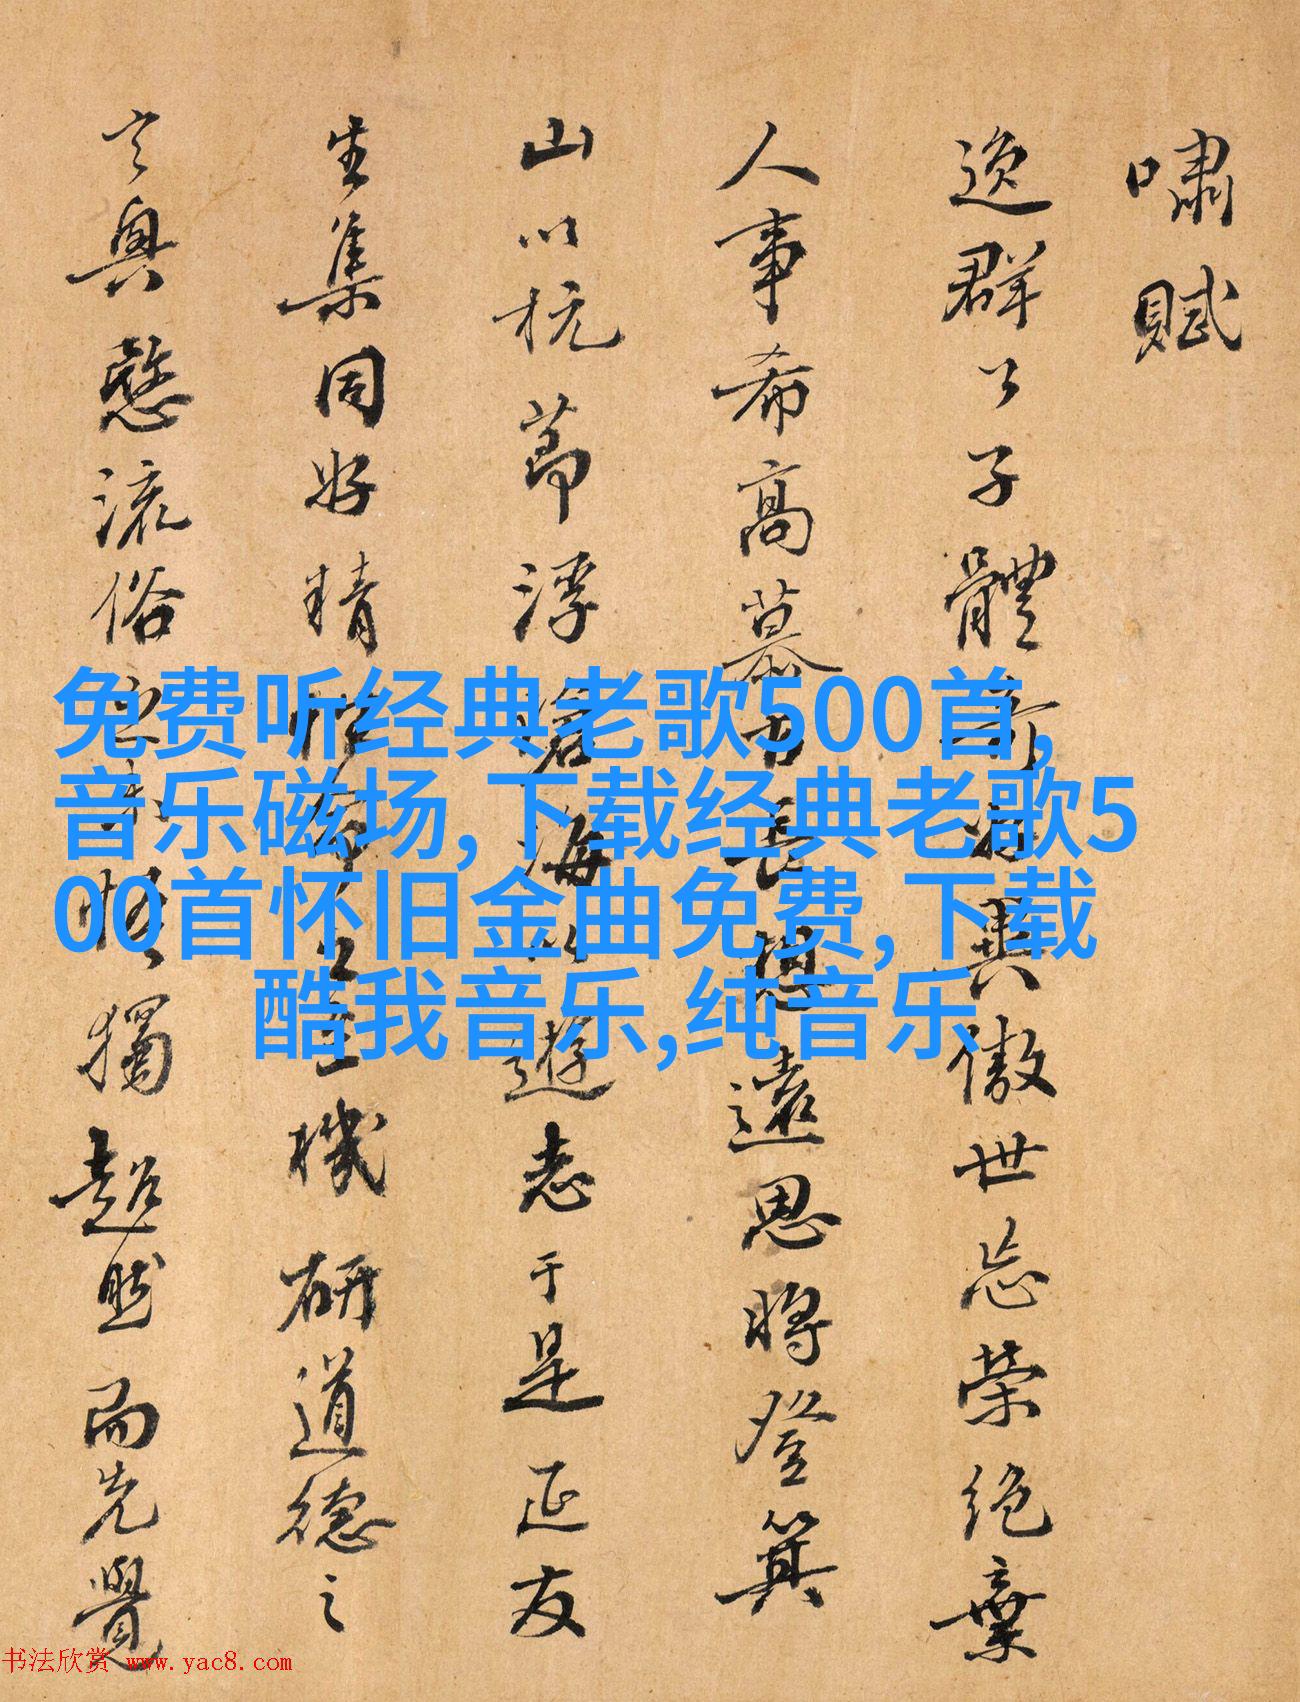 嘯賦
逸群公子體奇好異傲世忘榮絕棄
人事希高慕古長想遠思將登箕
山以抗節浮滄海以遊志于是延友
生集同好精性命之至機研道德之
玄奧愍流俗之未悟獨超然而先覺
免费听经典老歌500首,
音乐磁场,下载经典老歌5
00首怀旧金曲免费,下载
酷我音乐,纯音乐
书法欣赏 www.yac8.com